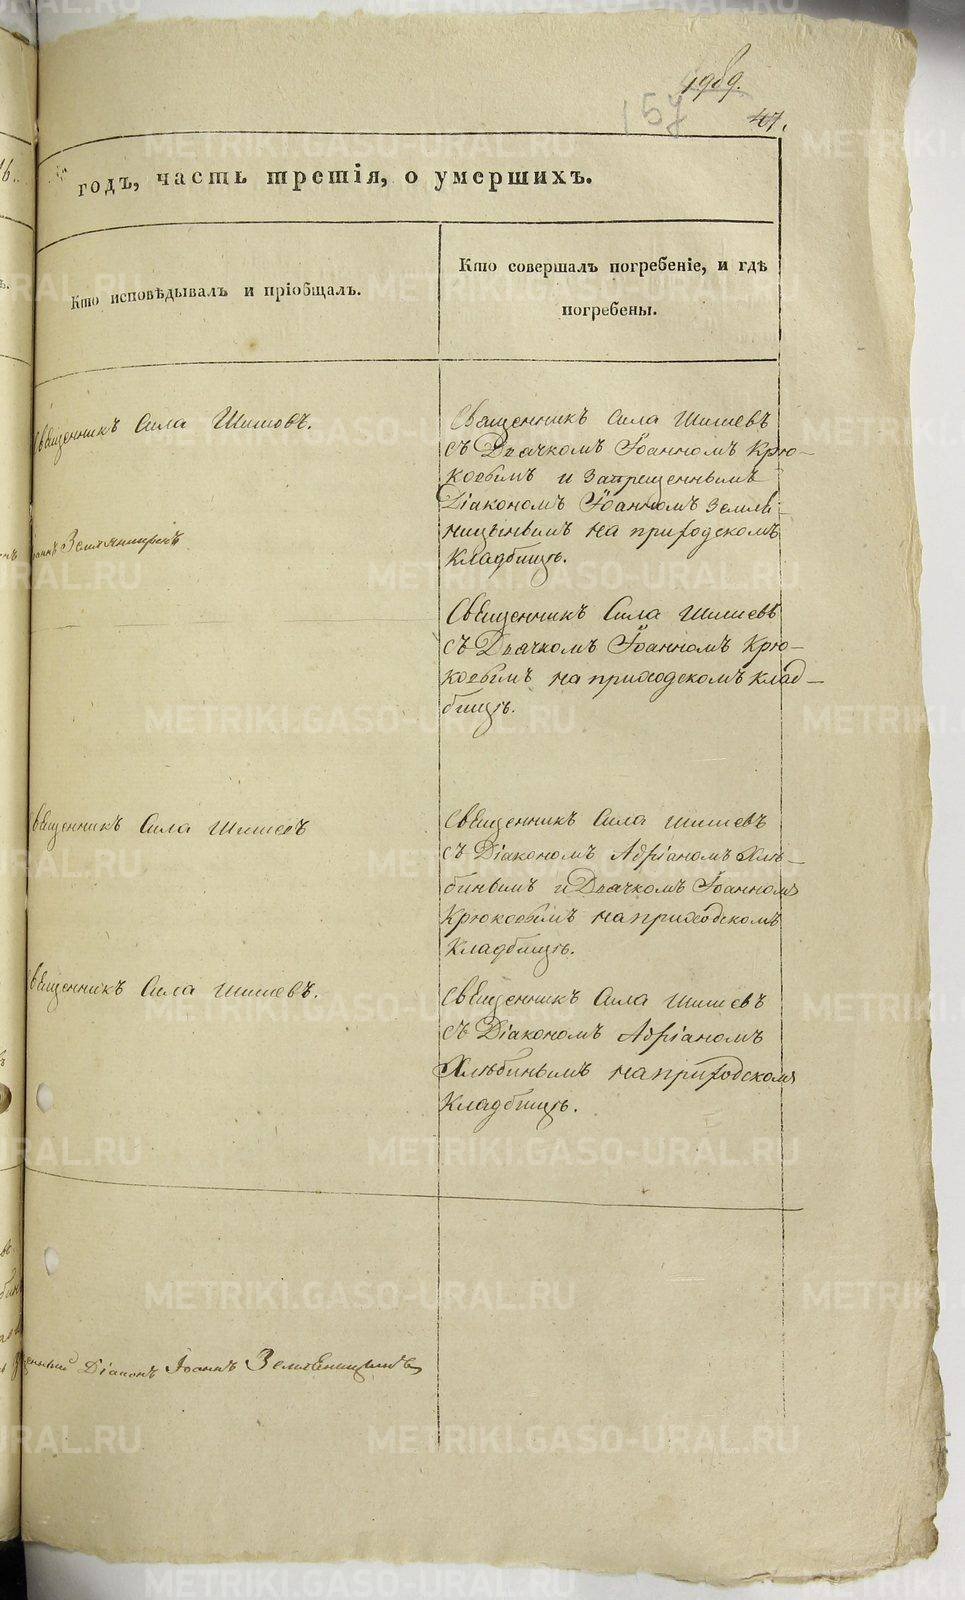 1989.
157
47.
годъ, часть третія, о умершихъ.
Кто исповѣдывалъ и пріобщалъ.
Кто совершалъ погребеніе, и гдѣ
погребены.
Священникъ Сила Шишовъ.
Іоаннъ Земляницынъ
Священникъ Сила Шишевъ
Священникъ Сила Шишевъ.
Священникъ Сила Шишевъ
съ Дьячкомъ Іоанномъ Крю-
ковымъ и запрещеннымъ
Діакономъ Іоанномъ Земля-
ницынымъ на приходскомъ
кладбищѣ.
Священникъ Сила Шишевъ
съ Дьячкомъ Іоанномъ Крю-
ковымъ на приходскомъ клад-
бищѣ.
Священникъ Сила Шишевъ
съ Діакономъ Адріаномъ Хлѣ-
бинымъ и Дьячкомъ Іоанномъ
Крюковымъ на приходскомъ
кладбищѣ.
Священникъ Сила Шишевъ
съ Діакономъ Адріаномъ
Хлѣбинымъ на приходскомъ
кладбищѣ.
Діаконъ Іоаннъ Земляницынъ
METRIKI.GASO-URAL.RU